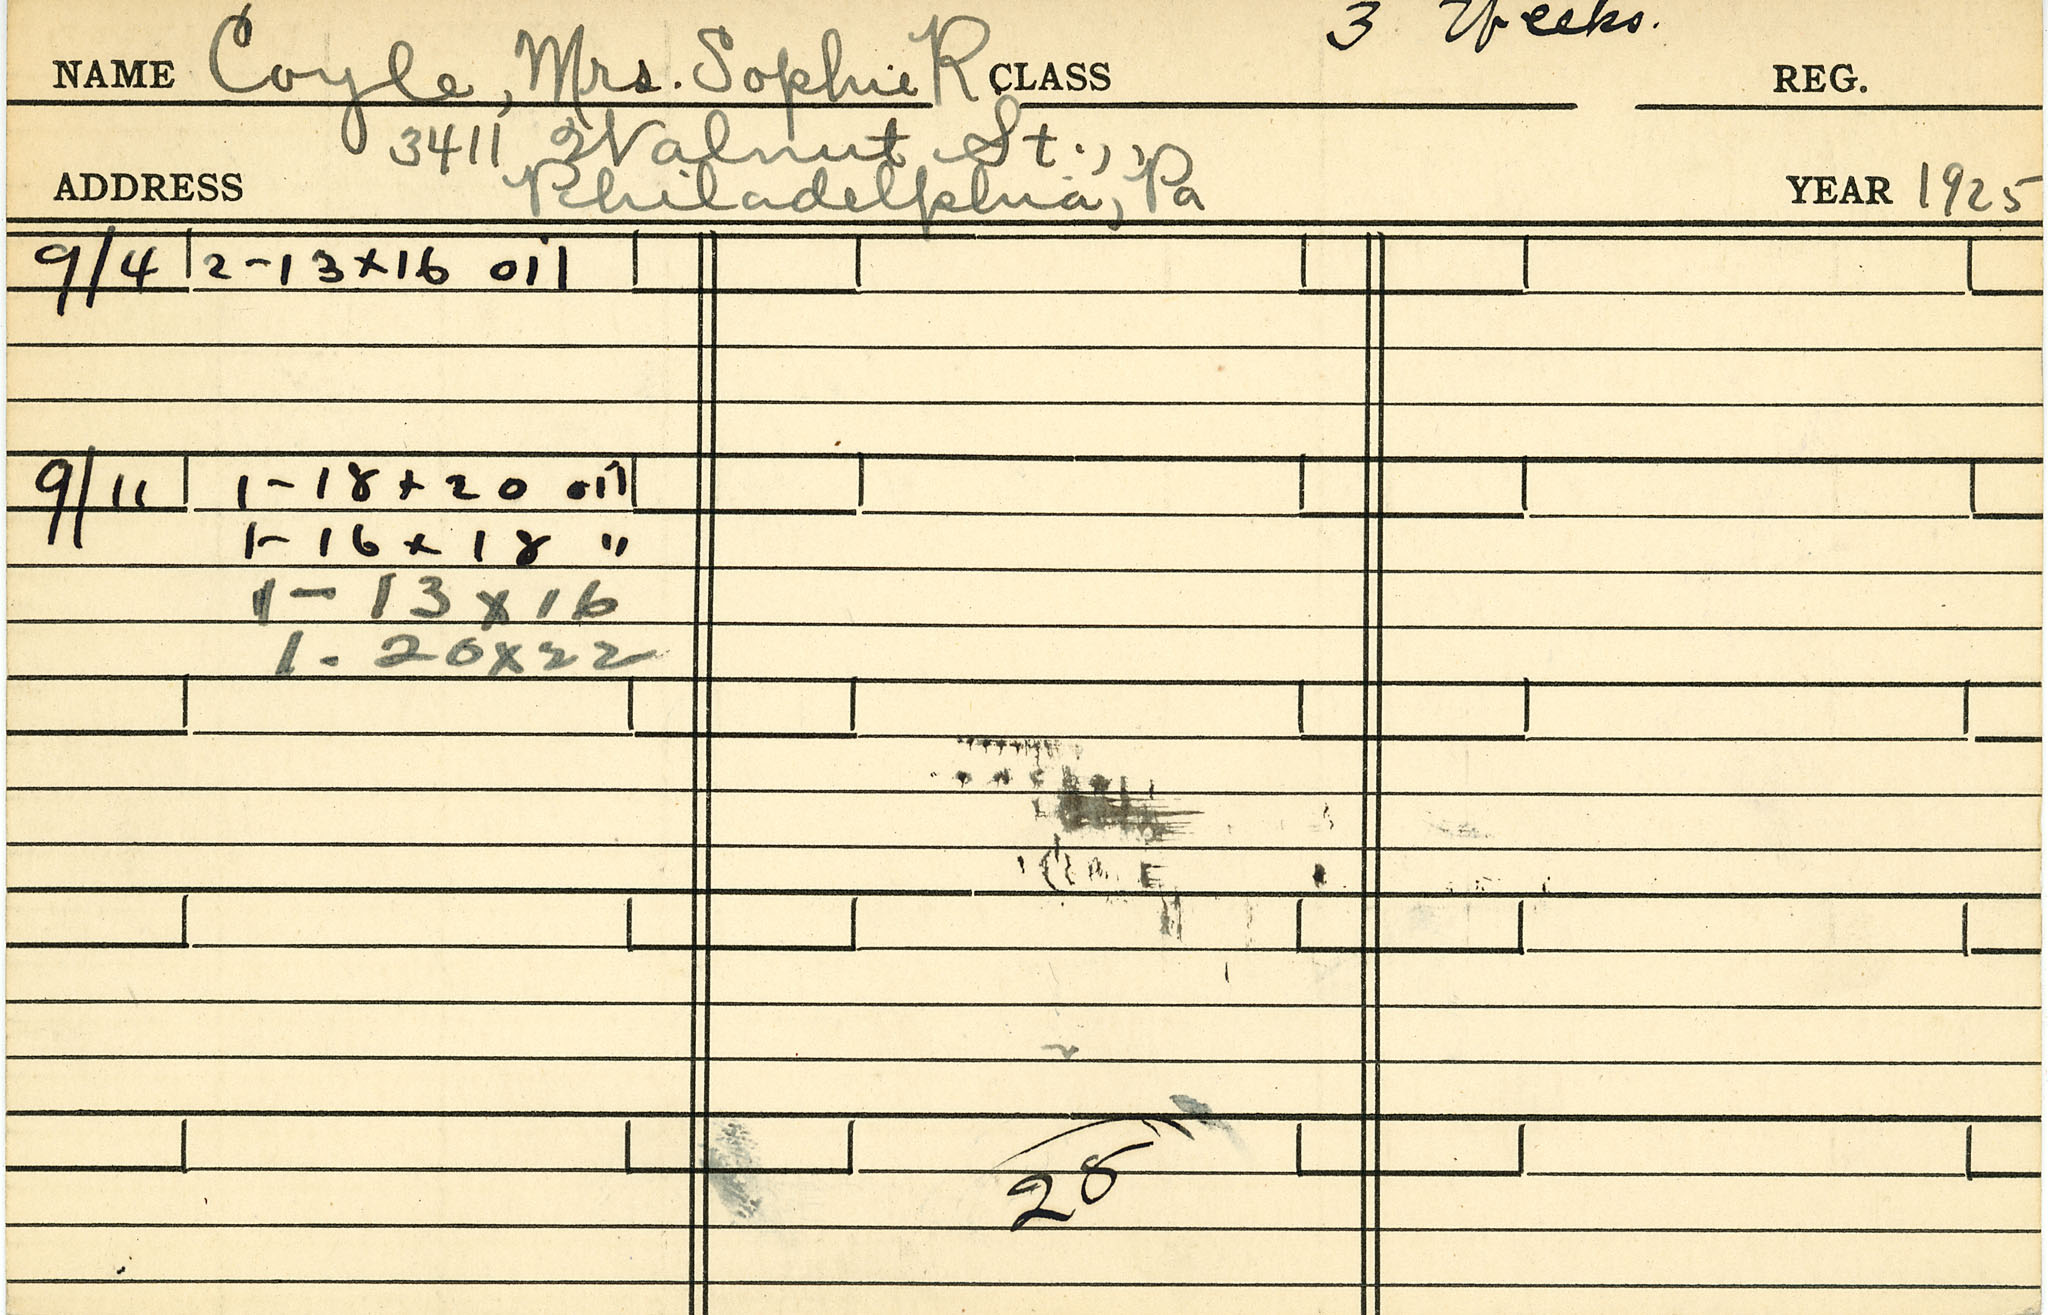 3 Weeks.
NAME Coyle, Mrs. Sophie R CLASS REG.
3411 Walnut St.,,
ADDRESS Philadelphia, Pa YEAR 1925
9/4 2-13x16 oil
9/11 1-18x20 oil
1-16x18 "
1-13x16
1-20x22
28